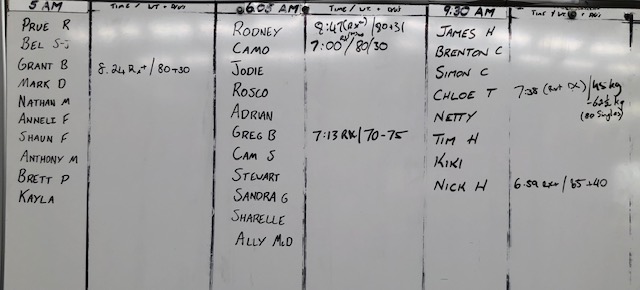 5 AM TIME / WT + DIST
PRUE R
BEL S-J
GRANT B 8.24 Rx+ / 80+30
MARK D
NATHAN M
ANNELE F
SHAUN F
ANTHONY M
BRETT P
KAYLA
6.05 AM TIME / WT + DIST
RODNEY 8:47 (Rx+) / 80+31
CAMO 7:00 / 80/30
JODIE
ROSCO
ADRIAN
GREG B 7:13 RX / 70-75
CAM S
STEWART
SANDRA G
SHARELLE
ALLY McD
9.30 AM TIME / WT + DIST
JAMES H
BRENTON C
SIMON C
CHLOE T 7:38 / 45 kg
-62½ kg
NETTY (80 Singles)
TIM H
KIKI
NICK H 6.59 Rx+ / 85+40